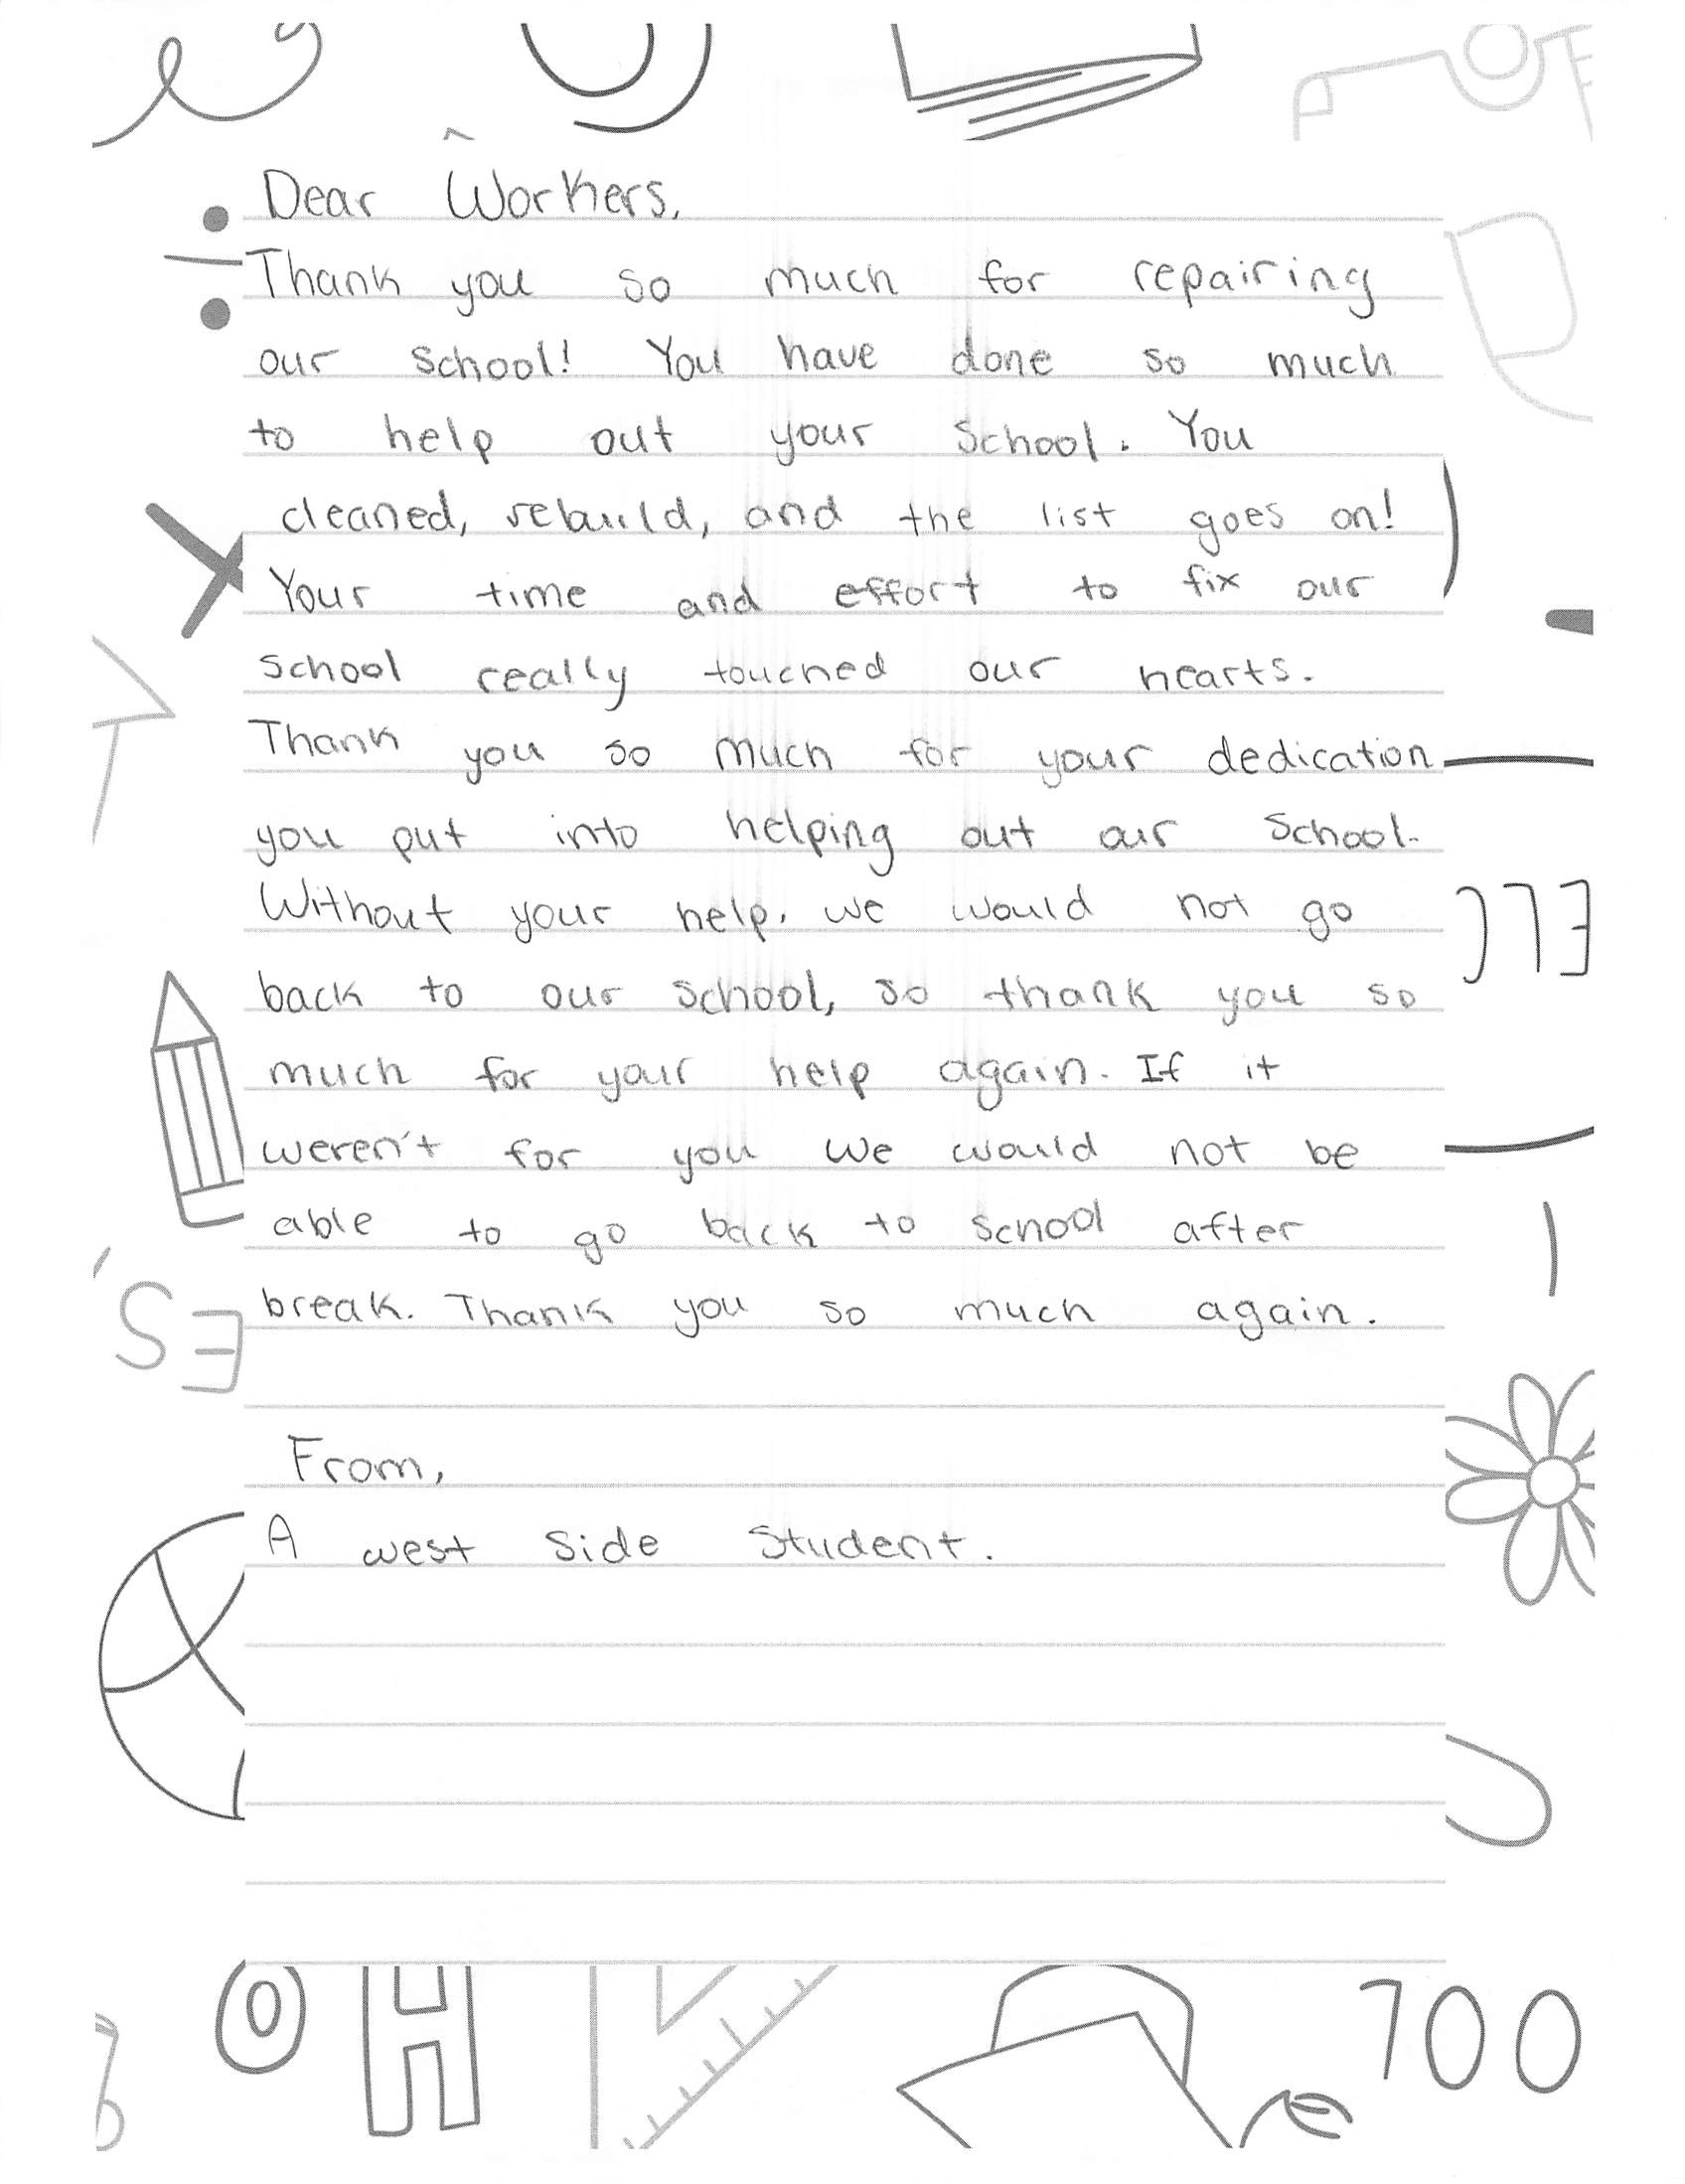 Dear Workers,
Thank you so much for repairing
our school! You have done so much
to help out your school. You
cleaned, rebuild, and the list goes on!
Your time and effort to fix our
school really touched our hearts.
Thank you so much for your dedication
you put into helping out our school.
Without your help, we would not go
back to our school, so thank you so
much for your help again. If it
weren't for you we would not be
able to go back to school after
break. Thank you so much again.
From,
A west side student.
OH
100